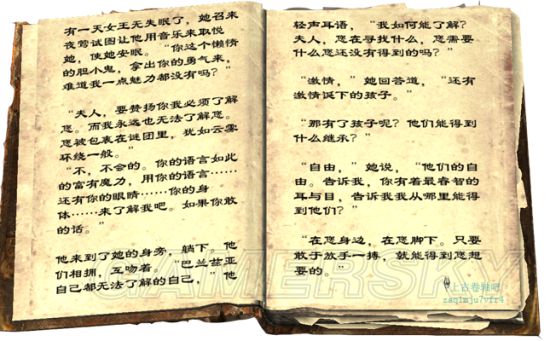 有一天女王无失眠了，她召来
夜莺试图让他用音乐来取悦
她，使她安眠。 “你这个懒惰
的胆小鬼，拿出你的勇气来，
难道我一点魅力都没有吗？”
“夫人，要赞扬你我必须了解
您。而我永远也无法了解您。
您被包裹在谜团里，犹如云雾
环绕一般。”
“不，不会的。你的语言如此
的富有魔力，用你的语言……
还有你的眼睛……你的身
体……来了解我吧。如果你敢
的话。”
他来到了她的身旁，躺下。他
们相拥，互吻着。 “巴兰兹亚
自己都无法了解的自己，”他
轻声耳语， “我如何能了解？
夫人，您在寻找什么，您需要
什么您还没有得到的吗？”
“激情，”她回答道， “还有
激情诞下的孩子。”
“那有了孩子呢？他们能得到
什么继承？”
“自由，”她说， “他们的自
由。告诉我，你有着最睿智的
耳与目，告诉我我从哪里能得
到他们？”
“在您身边，在您脚下。只要
敢于放手一搏，就能得到您想
要的。”
GAMERSKY
上古卷轴吧
zaq1mju7vfr4